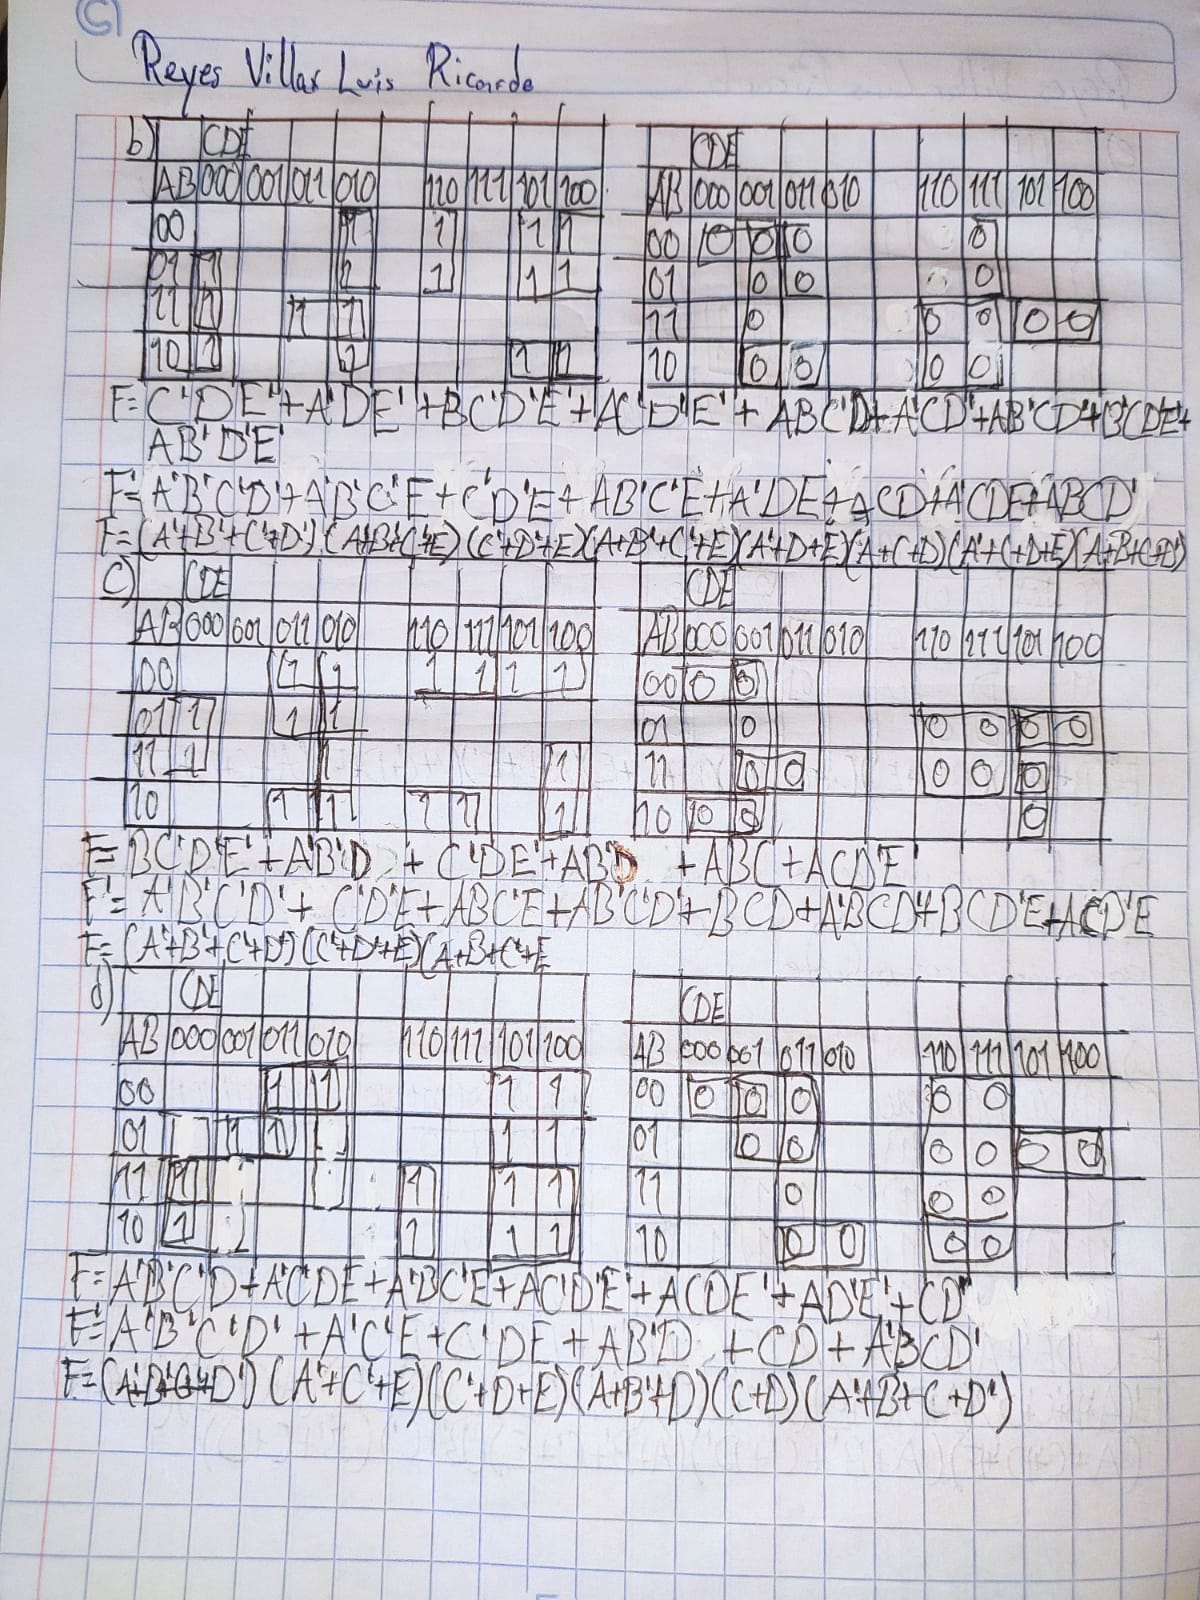 Reyes Villar Luis Ricardo
b) CDE
AB 000 001 011 010 110 111 101 100
00 1 1 1 1
01 1 1 1 1 1
11 1 1 1
10 1 1 1 1
CDE
AB 000 001 011 010 110 111 101 100
00 0 0 0 0
01 0 0 0
11 0 0 0 0 0
10 0 0 0 0
F= C'DE'+A'DE'+BC'D'E'+AC'D'E'+ABC'D+A'CD'+AB'CD'+B'CDE'+
AB'D'E'
F'=A'B'C'D'+A'B'C'E+C'D'E+AB'C'E+A'DE+ACD+A'CDE+ABCD'
F=(A'+B'+C'+D')(A'+B'+C'+E)(C'+D'+E)(A+B'+C'+E)(A'+D+E)(A+C+D)(A'+C+D+E)(A+B+C+D')
c) CDE
AB 000 001 011 010 110 111 101 100
00 1 1 1 1 1 1
01 1 1 1
11 1 1 1
10 1 1 1 1 1
CDE
AB 000 001 011 010 110 111 101 100
00 0 0
01 0 0 0 0 0
11 0 0 0 0 0
10 0 0 0
F= BC'D'E'+A'B'D + C'DE'+AB'D +A'B'C+ACD'E'
F'= A'B'C'D'+ C'D'E+ABC'E+AB'C'D'+BCD+A'BCD'+BCD'E+ACD'E
F= (A'+B'+C'+D')(C'+D'+E)(A+B+C'+E
d) CDE
AB 000 001 011 010 110 111 101 100
00 1 1 1 1
01 1 1 1 1
11 1 1 1 1
10 1 1 1 1
CDE
AB 000 001 011 010 110 111 101 100
00 0 0 0 0 0
01 0 0 0 0 0 0
11 0 0 0
10 0 0 0 0
F= A'B'C'D+A'C'DE+A'BC'E+AC'D'E'+ACDE'+AD'E'+CD'
F'=A'B'C'D'+A'C'E+C'DE+AB'D +CD+A'BCD'
F=(A'+B'+C'+D')(A'+C'+E)(C'+D+E)(A+B'+D)(C+D)(A'+B+C+D')